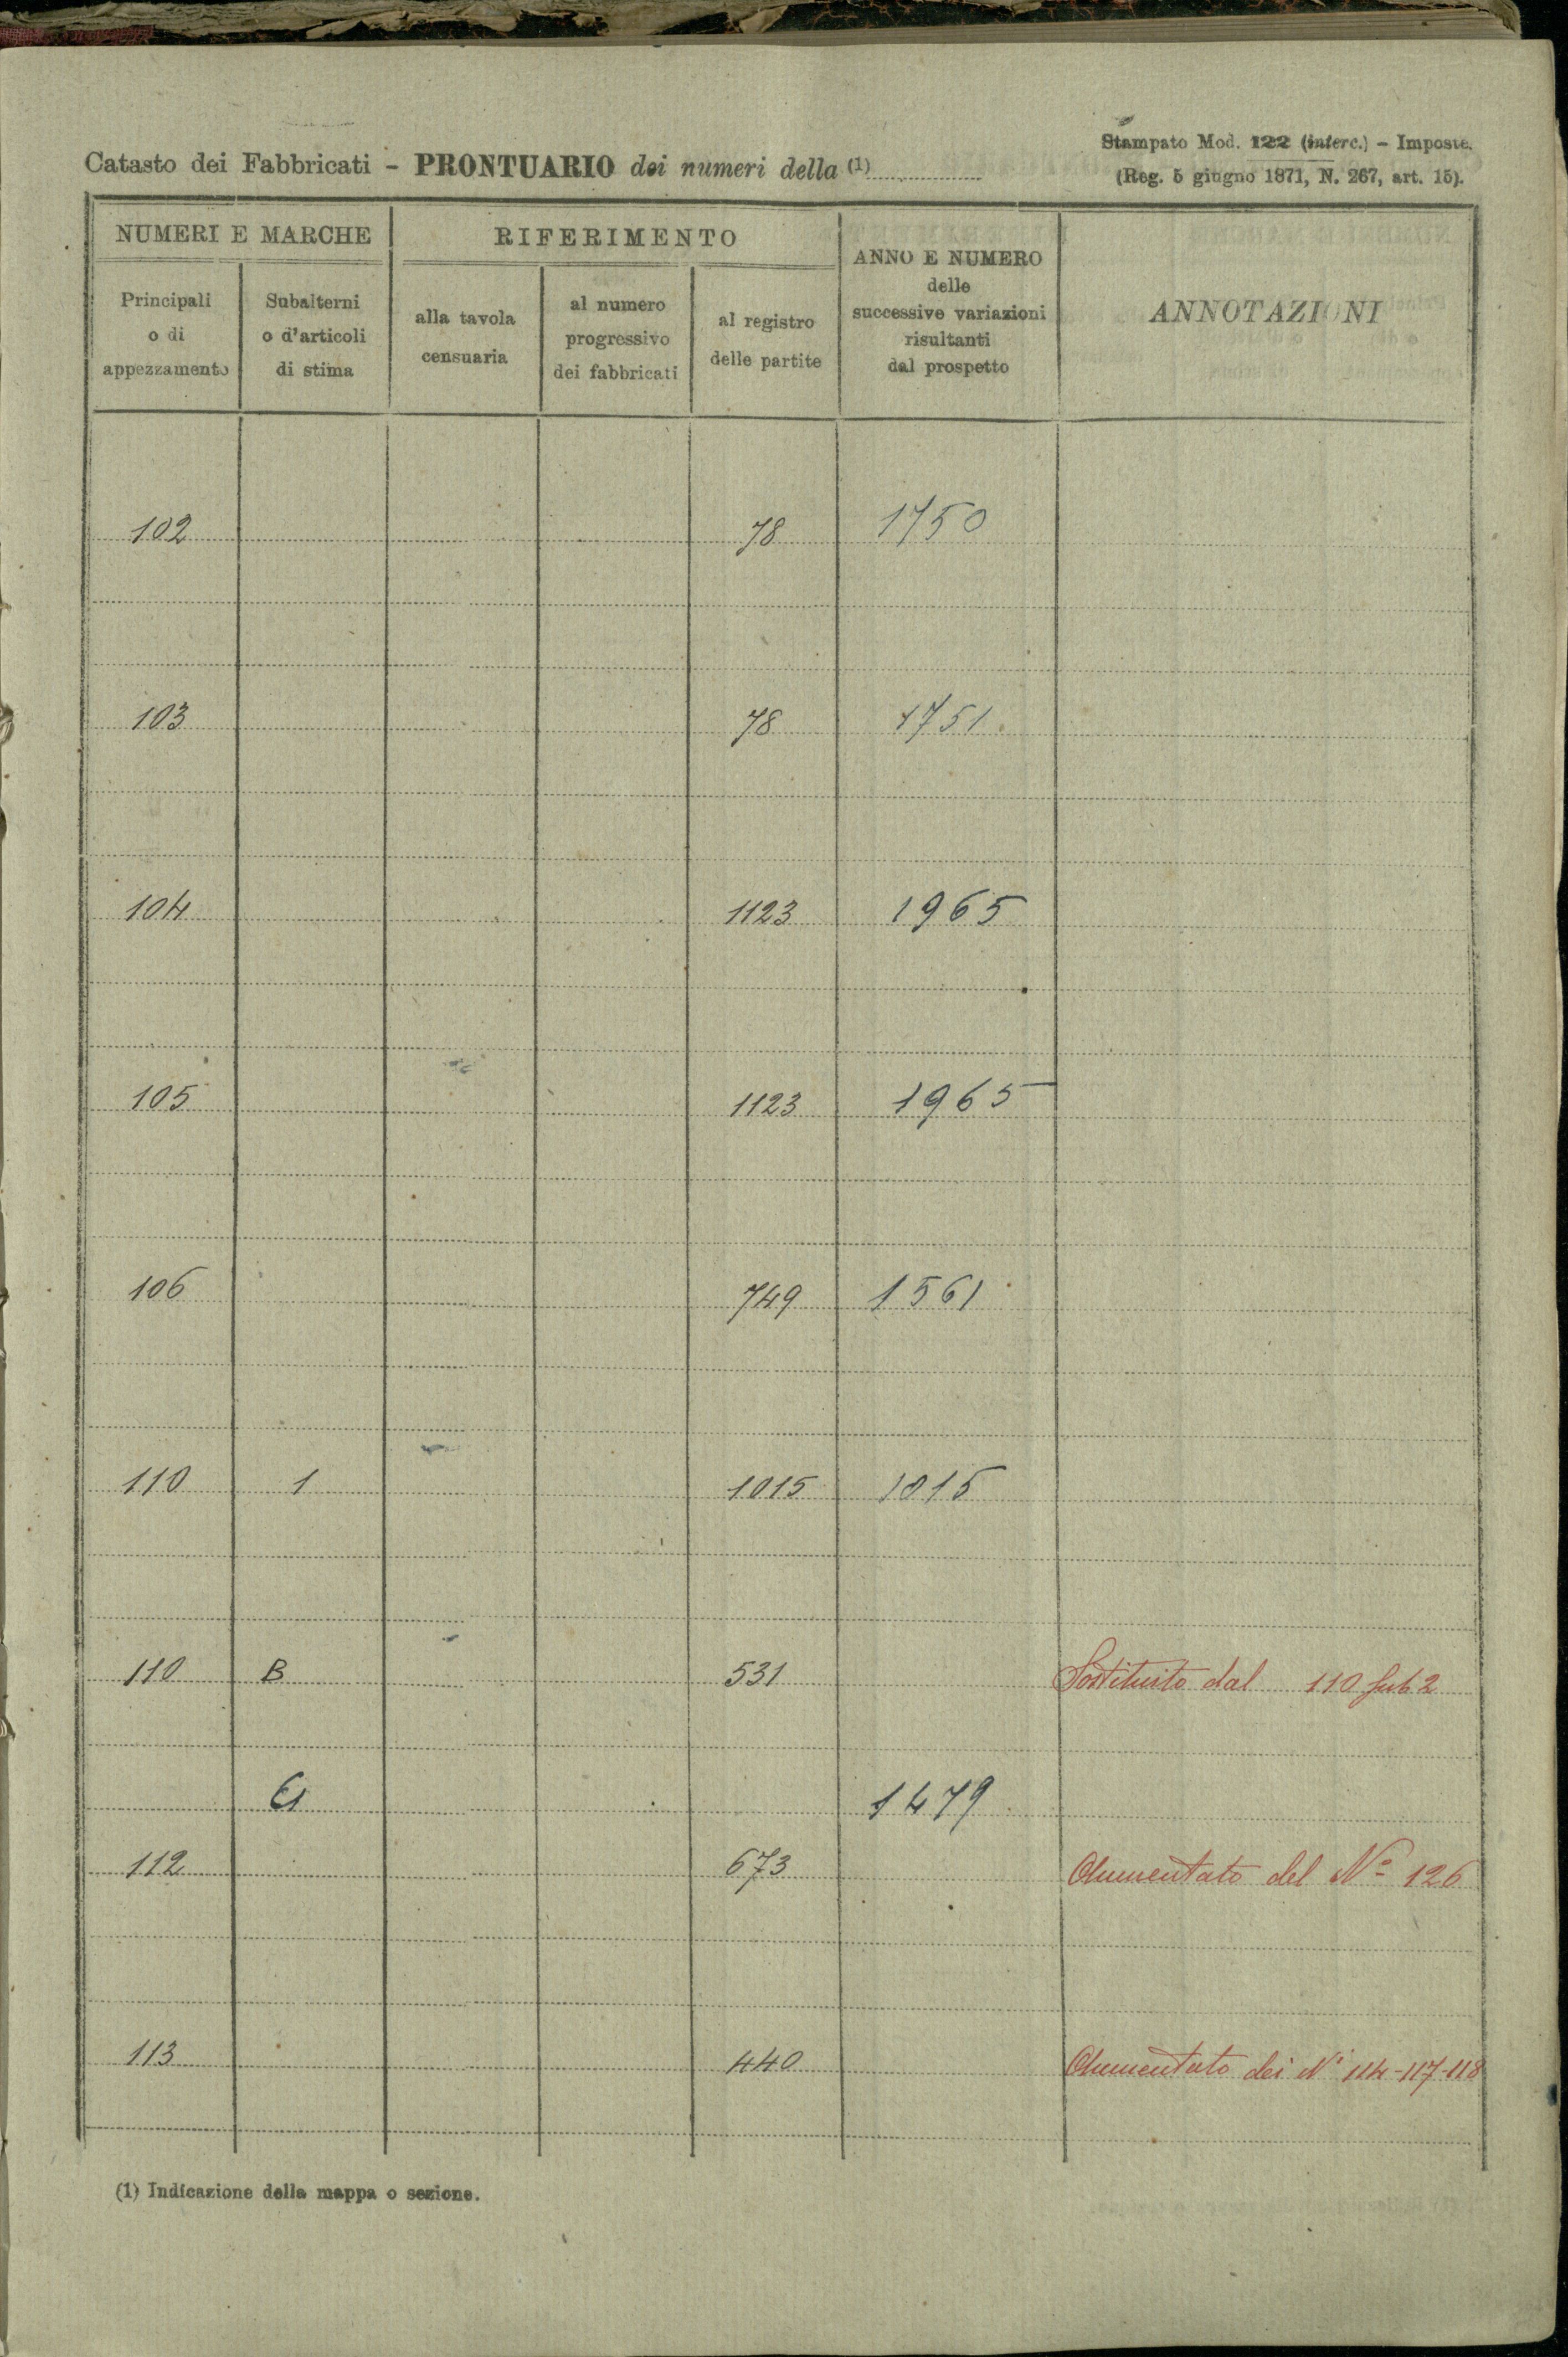 Catasto dei Fabbricati - PRONTUARIO dei numeri della (1)
Stampato Mod. 122 (interc.) - Imposte.
(Reg. 5 giugno 1871, N. 267, art. 15).
NUMERI E MARCHE
RIFERIMENTO
ANNO E NUMERO
delle
successive variazioni
risultanti
dal prospetto
ANNOTAZIONI
Principali
o di
appezzamento
Subalterni
o d'articoli
di stima
alla tavola
censuaria
al numero
progressivo
dei fabbricati
al registro
delle partite
102 78 1750
103 78 1751
104 1123 1965
105 1123 1965
106 749 1561
110 1 1015 1015
110 B 531 Sostituito dal 110 sub 2
1479
112 673 Aumentato del Nº 126
113 440 Aumentato dei Ni 114-117-118
(1) Indicazione della mappa o sezione.